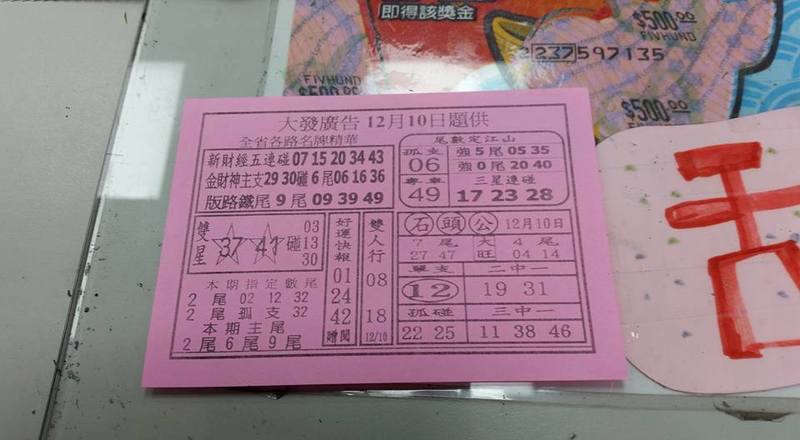 即得該獎金
$500.00
FIVHUND
2237597135
FIVHUND
$500.00
$500.00
大發廣告 12月10日題供
全省各路名牌精華
新財經五連碰 07 15 20 34 43
金財神主支 29 30 碰 6 尾 06 16 36
版路鐵尾 9 尾 09 39 49
尾數定江山
孤支 06
強 5 尾 05 35
強 0 尾 20 40
專車 49
三星連碰
17 23 28
雙星 37 41 碰 03 13 30
本期指定數尾
2 尾 02 12 32
2 尾 孤 支 32
本 期 主 尾
2 尾 6 尾 9 尾
好運快報
01
24
42
贈閱
雙人行
08
18
12/10
石頭公 12月10日
7 尾 大 4 尾
27 47 旺 04 14
單支 二中一
12 19 31
孤碰 三中一
22 25 11 38 46